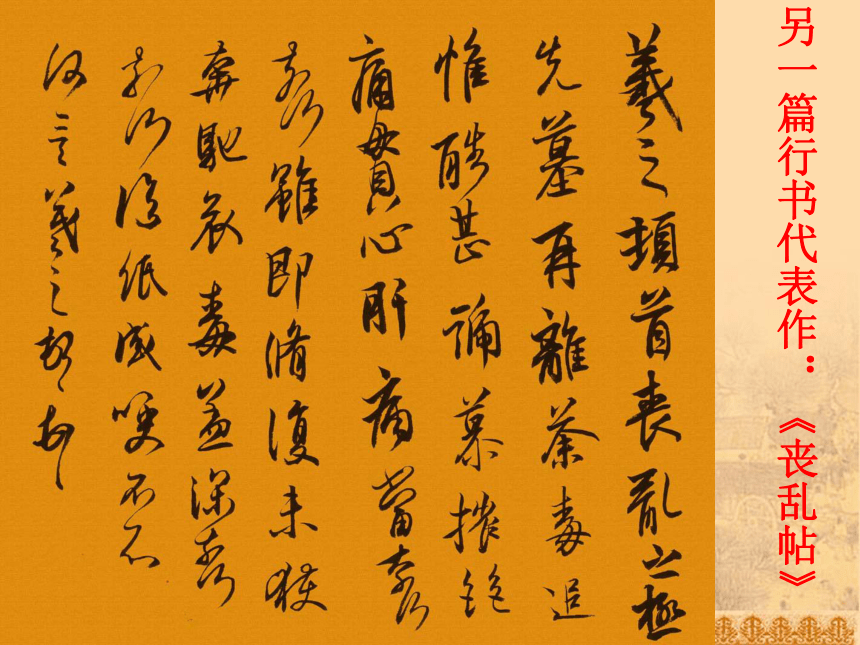 另一篇行书代表作：《丧乱帖》
羲之頓首喪亂之極
先墓再離荼毒追
惟酷甚號慕摧絕
痛貫心肝痛當奈何
奈何雖即脩復未獲
奔馳哀毒益深奈何
奈何臨紙感哽不知
何言羲之頓首頓首